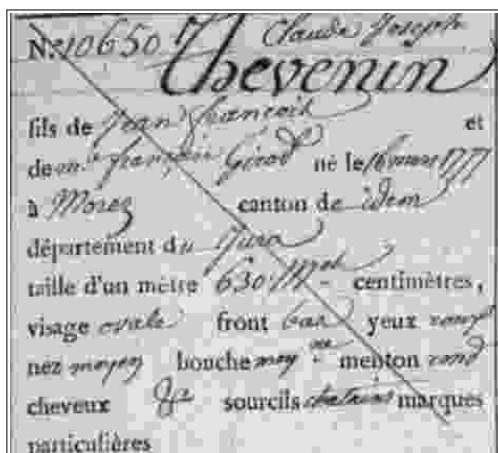 N.º 10650 Claude Joseph
Thevenin
fils de Jean françois et
de m.e françoise Girod né le 16 mars 1777
à Morez canton de idem
département du Jura
taille d'un mètre 630 M. centimètres,
visage ovale front bas yeux roux
nez moyen bouche moy.ne menton rond
cheveux & sourcils chatains marques
particulières